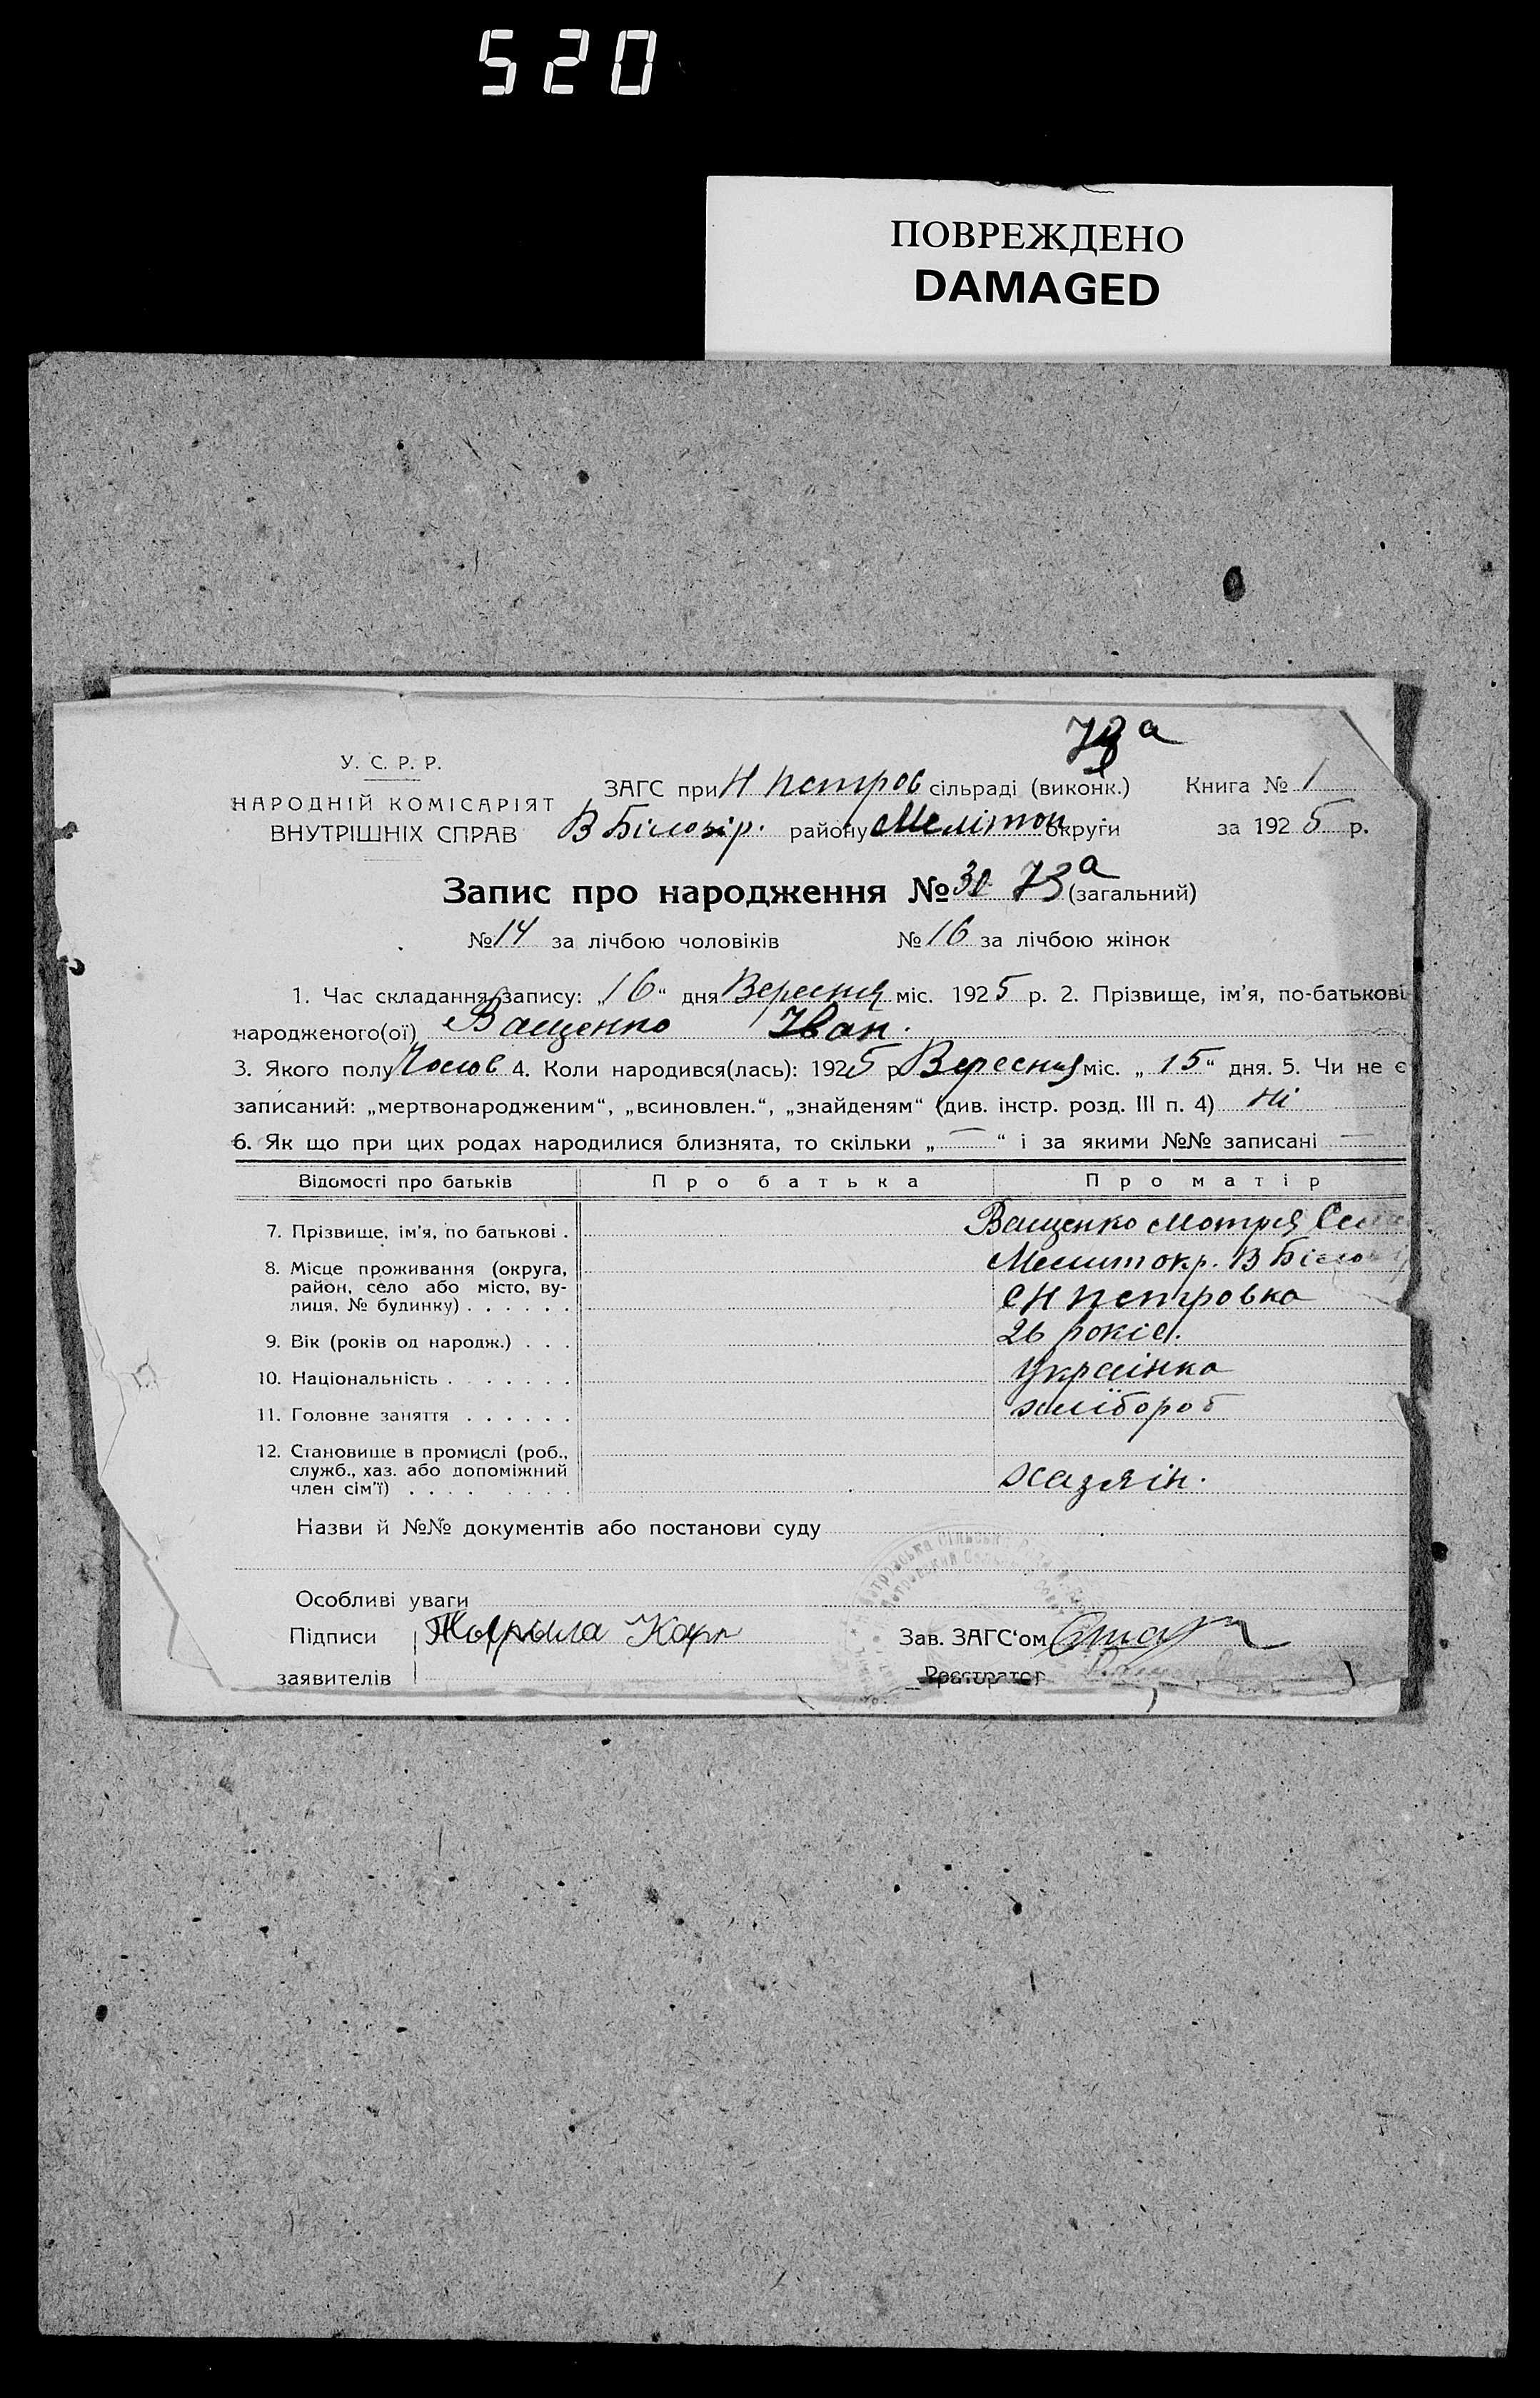 520
ПОВРЕЖДЕНО
DAMAGED
а
У. С. Р. Р.
НАРОДНІЙ КОМІСАРІЯТ
ВНУТРІШНІХ СПРАВ
ЗАГС при Н петров сільраді (виконк.) Книга № 1
В Білозір. району Мелітоп округи за 1925 р.
Запис про народження № 30 73а (загальний)
№ 14 за лічбою чоловіків № 16 за лічбою жінок
1. Час складання запису: „16“ дня Вересня міс. 1925 р. 2. Прізвище, ім’я, по-батькові
народженого(ої) Ващенко Іван.
3. Якого полу Чолов 4. Коли народився(лась): 1925 р Вересня міс. „15“ дня. 5. Чи не є
записаний: „мертвонародженим“, „всиновлен.“, „знайденям“ (див. інстр. розд. III п. 4) Ні
6. Як що при цих родах народилися близнята, то скільки „—“ і за якими №№ записані —
Відомості про батьків Про батька Про матір
7. Прізвище, ім’я, по батькові . Ващенко Мотря
8. Місце проживання (округа, Мелит окр. В Біло
район, село або місто, ву-
лиця, № будинку) . . . . . . С Н петровка
9. Вік (років од народж.) . . . 26 років.
10. Національність . . . . . . . Українка
11. Головне заняття . . . . . . хлібороб
12. Становище в промислі (роб.,
служб., хаз. або допоміжний
член сім’ї) . . . . . . . . хазяін.
Назви й №№ документів або постанови суду
Особливі уваги
Підписи Кар
Зав. ЗАГС‘ом
заявителів
Реєстратор